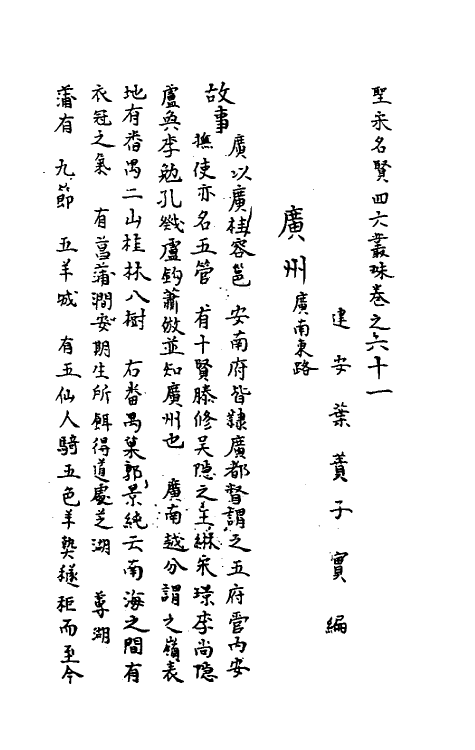 聖宋名賢四六叢珠卷之六十一
建安葉蕡子實編
廣州廣南東路
故事
廣以廣桂容邕 安南府皆隸廣都督謂之五府管內安
撫使亦名五管 有十賢滕修吳隱之王綝宋璟李尚隱
盧奐李勉孔戣盧鈞蕭倣並知廣州也 廣南越分謂之嶺表
地有番禺二山桂林八樹 右番禺菓郭景純云南海之間有
衣冠之氣 有菖蒲澗安期生所餌得道處芝湖 蓴湖
蒲有 九節 五羊城 有五仙人騎五色羊執穟秬而至今